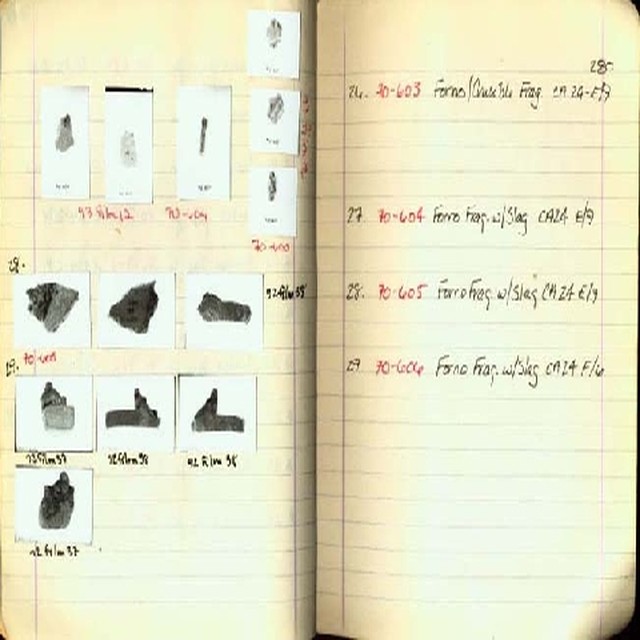 93 film 2
70-604
28.
92 film 38
29.
92 film 38
92 film 38
92 film 37
28
26. 70-603 Forno/Crucible Frag. CA 24-E/9
27. 70-604 Forno Frag. w/Slag CA24 E/9
28. 70-605 Forno Frag. w/Slag CA 24 E/9
29. 70-606 Forno Frag. w/Slag CA24 F/6